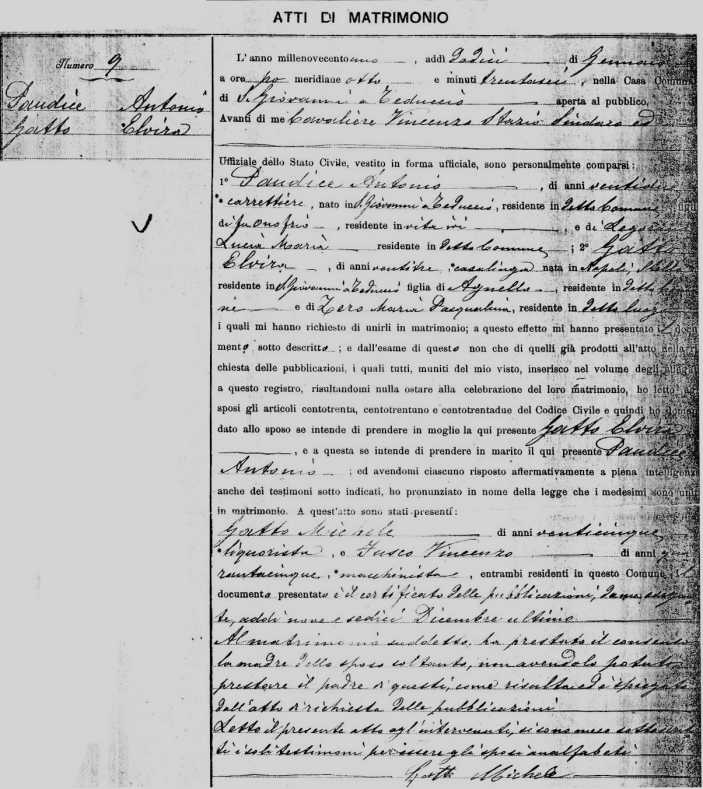 ATTI DI MATRIMONIO
Numero 9
Paudice Antonio
Gatto Elvira
L'anno millenovecentouno, addì dodici di Gennaio
a ore po meridiane otto e minuti trentasei, nella Casa Comuna
di S. Giovanni a Teduccio aperta al pubblico,
Avanti di me Cavaliere Vincenzo Sindaco ed
Uffiziale dello Stato Civile, vestito in forma uffiziale, sono personalmente comparsi:
1° Paudice Antonio, di anni ventidue
carrettiere, nato in S. Giovanni a Teduccio, residente in detto Comune,
di fu Onofrio, residente in vita ivi, e di
Lucia Maria residente in detto Comune; 2° Gatto
Elvira, di anni ventitre, casalinga nata in Napoli, Stella
residente in S. Giovanni a Teduccio figlia di Agnello, residente in detto
ne e di Zero Maria Pasqualina, residente in detto luogo
i quali mi hanno richiesto di unirli in matrimonio; a questo effetto mi hanno presentato il docu
mento sotto descritto; e dall'esame di questo non che di quelli già prodotti all'atto della
chiesta delle pubblicazioni, i quali tutti, muniti del mio visto, inserisco nel volume degli allegati
a questo registro, risultandomi nulla ostare alla celebrazione del loro matrimonio, ho letto agli
sposi gli articoli centotrenta, centotrentuno e centotrentadue del Codice Civile e quindi ho doman
dato allo sposo se intende di prendere in moglie la qui presente Gatto Elvira
, e a questa se intende di prendere in marito il qui presente Paudice
Antonio; ed avendomi ciascuno risposto affermativamente a piena intelligenza
anche dei testimoni sotto indicati, ho pronunziato in nome della legge che i medesimi sono uniti
in matrimonio. A quest'atto sono stati presenti:
Gatto Michele di anni venticinque
liquorista, e Fusco Vincenzo di anni qua
rantacinque, macchinista, entrambi residenti in questo Comune. Il
documento presentato è il certificato delle pubblicazioni,
te, addì nove e sedici Dicembre ultimo
Al matrimonio suddetto ha prestato il consenso
la madre dello sposo soltanto, non avendolo potuto
prestare il padre di questi, come risulta ed è spiegato
dall'atto di richiesta delle pubblicazioni
Letto il presente atto agl'intervenuti, si sono meco sottoscrit
ti i soli testimoni per essere gli sposi analfabeti
Gatto Michele